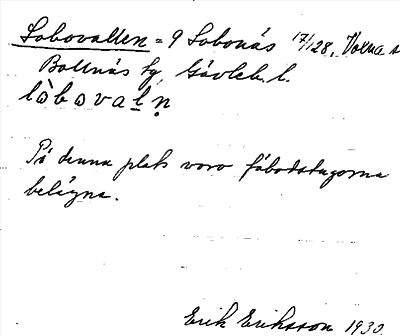 Lobovallen = 9 Lobonäs 17/128, Voxna s
Bollnäs fg, Gävleb. l.
lòbovaḷṇ
På denna plats voro fäbodstugorna
belägna.
Erik Eriksson 1930.